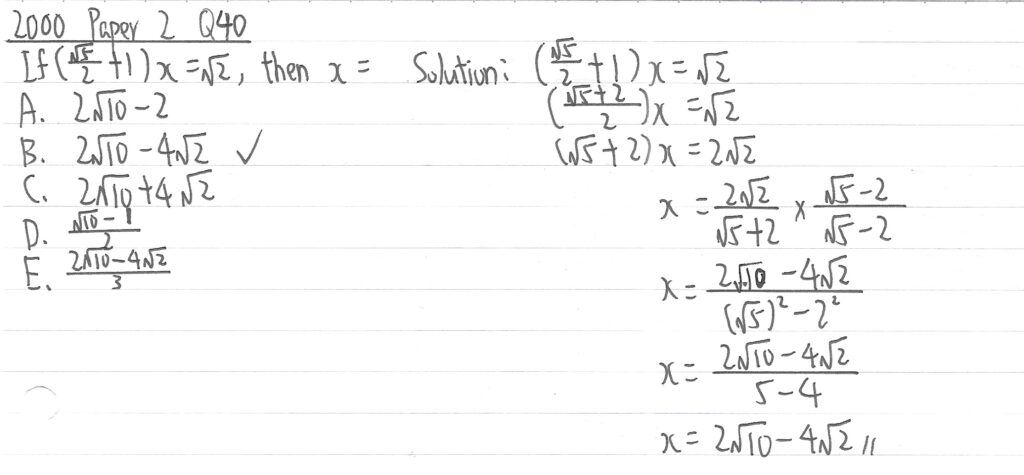 2000 Paper 2 Q40
If (√5/2 + 1)x = √2, then x =
A. 2√10 - 2
B. 2√10 - 4√2 ✓
C. 2√10 + 4√2
D. (√10 - 1)/2
E. (2√10 - 4√2)/3
Solution: (√5/2 + 1)x = √2
((√5 + 2)/2)x = √2
(√5 + 2)x = 2√2
x = 2√2/(√5 + 2) × (√5 - 2)/(√5 - 2)
x = (2√10 - 4√2)/((√5)² - 2²)
x = (2√10 - 4√2)/(5 - 4)
x = 2√10 - 4√2 //